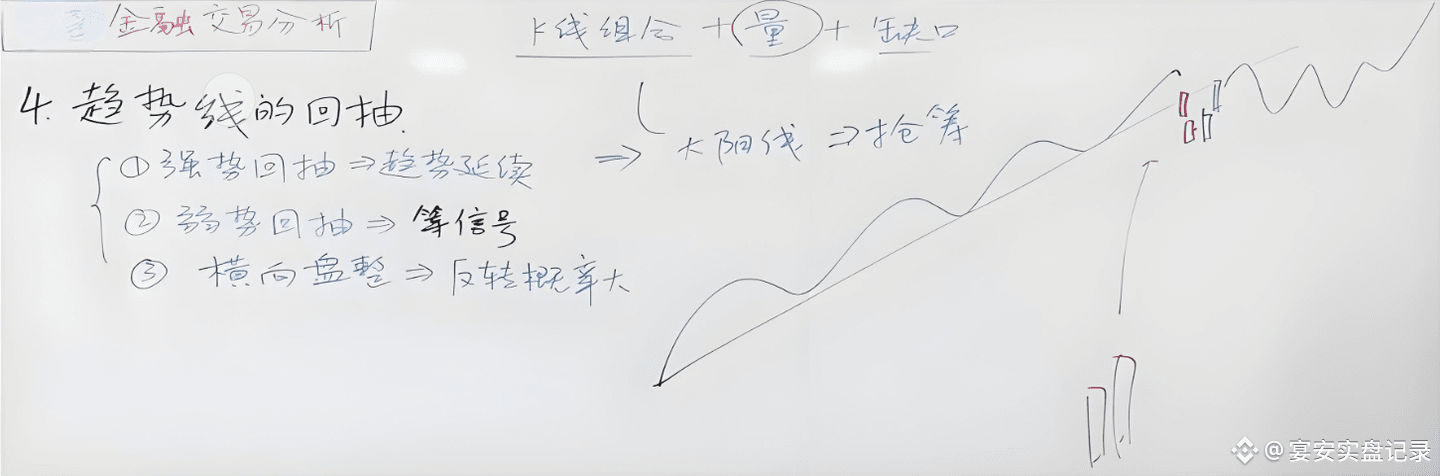 金融交易分析
K线组合 + 量 + 缺口
4. 趋势线的回抽.
① 强势回抽 ⇒ 趋势延续 ⇒ 大阳线 ⇒ 抢筹
② 弱势回抽 ⇒ 等信号
③ 横向盘整 ⇒ 反转概率大
@宴安实盘记录